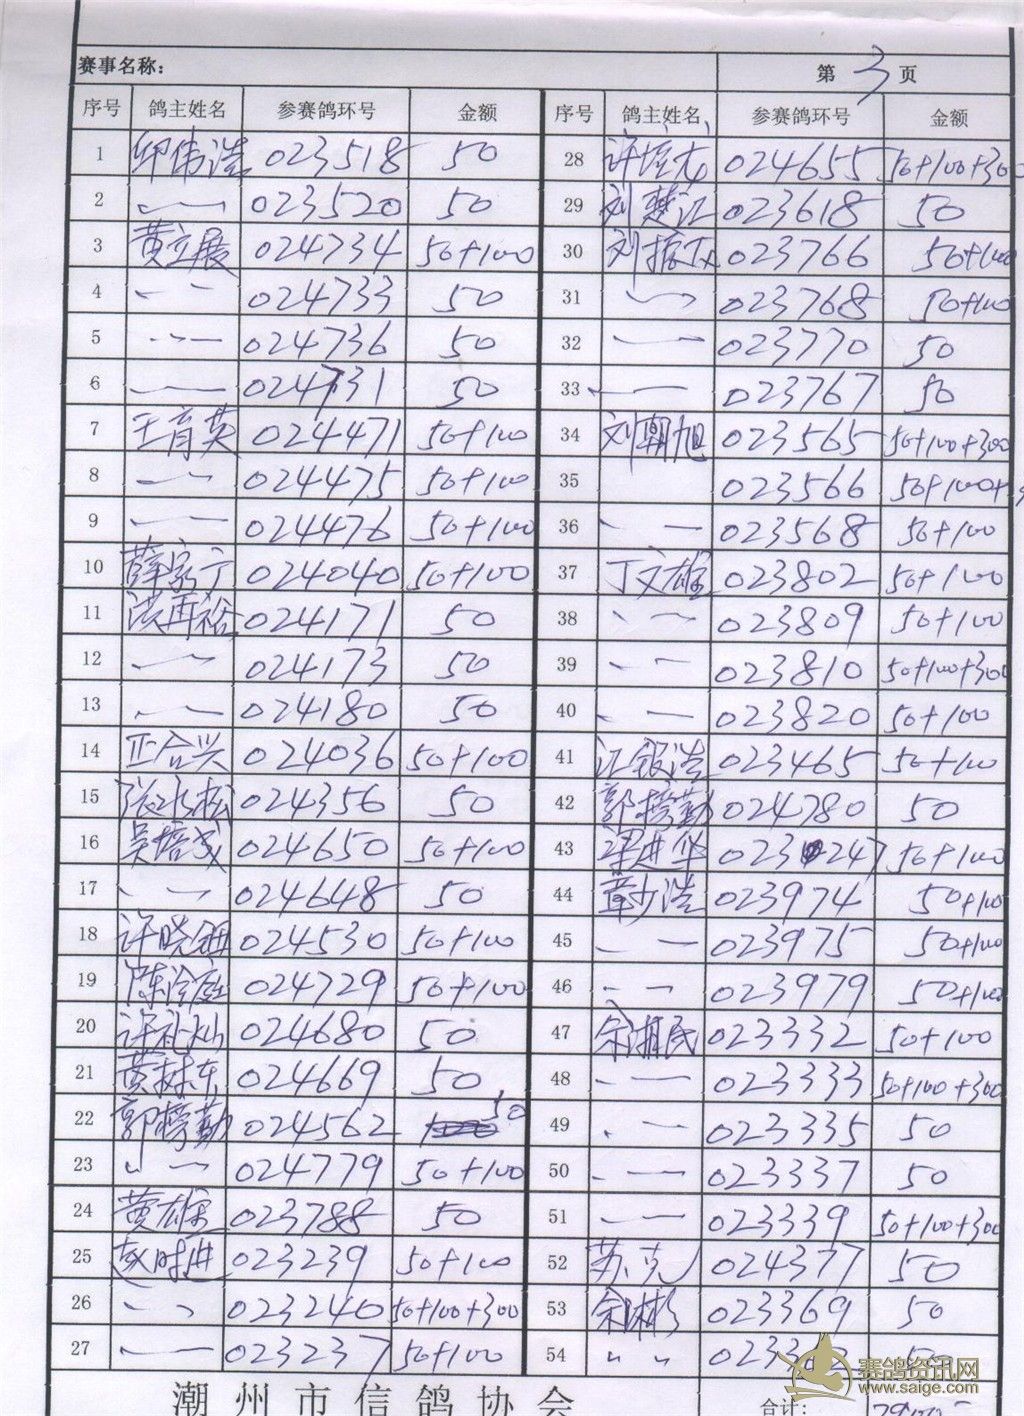 赛事名称: 第 3 页
序号 鸽主姓名 参赛鸽环号 金额 序号 鸽主姓名 参赛鸽环号 金额
1 邱伟浩 023518 50 28 许培龙 024655 50+100+300
2 〃 023520 50 29 刘楚江 023618 50
3 黄立展 024734 50+100 30 刘振 023766 50+100
4 〃 024733 50 31 〃 023768 50+100
5 〃 024736 50 32 〃 023770 50
6 〃 024731 50 33 〃 023767 50
7 王育英 024471 50+100 34 刘朝旭 023565 50+100+300
8 〃 024475 50+100 35 023566 50+100+
9 〃 024476 50+100 36 〃 023568 50+100
10 薛家宁 024040 50+100 37 丁文雄 023802 50+100
11 洪再裕 024171 50 38 〃 023809 50+100
12 〃 024173 50 39 〃 023810 50+100+300
13 〃 024180 50 40 〃 023820 50+100
14 正合兴 024036 50+100 41 江银浩 023465 50+100
15 张水松 024356 50 42 郭榜勤 024780 50
16 吴培成 024650 50+100 43 梁进华 023247 50+100
17 〃 024648 50 44 章少浩 023974 50+100
18 许晓 024530 50+100 45 〃 023975 50+100
19 陈 024729 50+100 46 〃 023979 50+100
20 许礼灿 024680 50 47 余湘民 023332 50+100
21 黄林东 024669 50 48 〃 023333 50+100+300
22 郭榜勤 024562 50 49 〃 023335 50
23 〃 024779 50+100 50 〃 023337 50
24 黄雄 023788 50 51 〃 023339 50+100+300
25 赵时进 023239 50+100 52 苏克 024377 50
26 〃 023240 50+100+300 53 余彬 023369 50
27 〃 023237 50+100 54 〃 0233 2 50
潮州市信鸽协会 合计:
赛鸽资讯网
www.saige.com